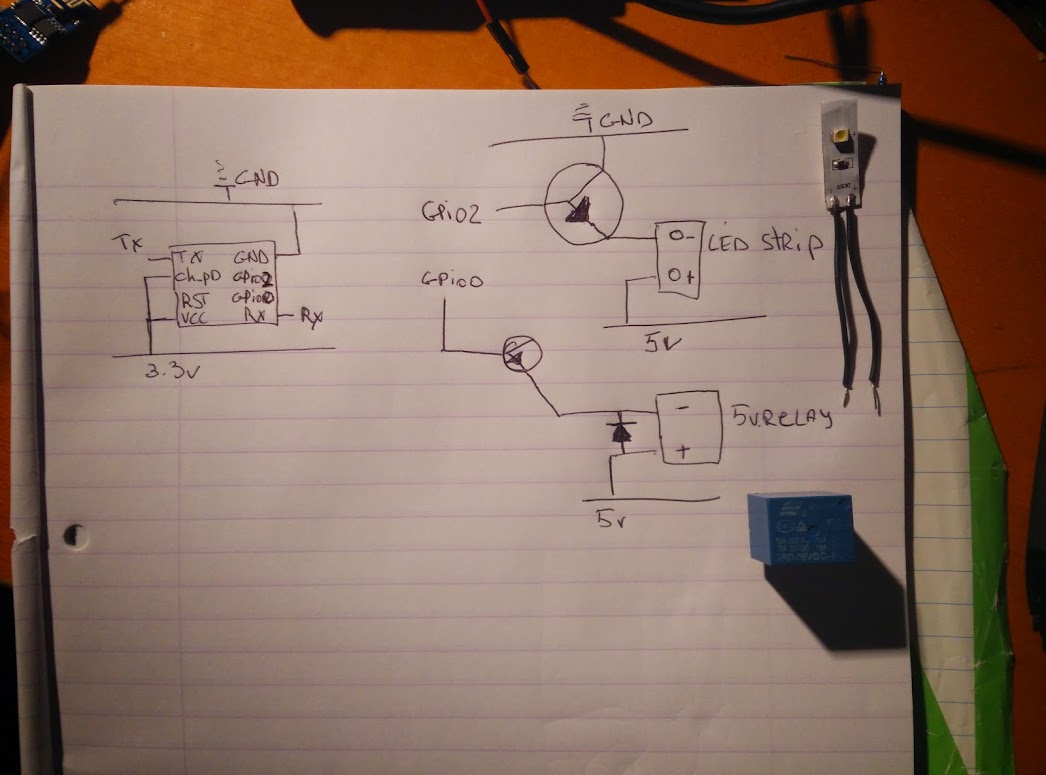 GND
Tx
TX GND
ch_pD GPio2
RST GPio0
VCC Rx
Rx
3.3v
GND
GPiO2
O-
O+
LED StRip
5v
GPiO0
-
+
5v.ReLAY
5v